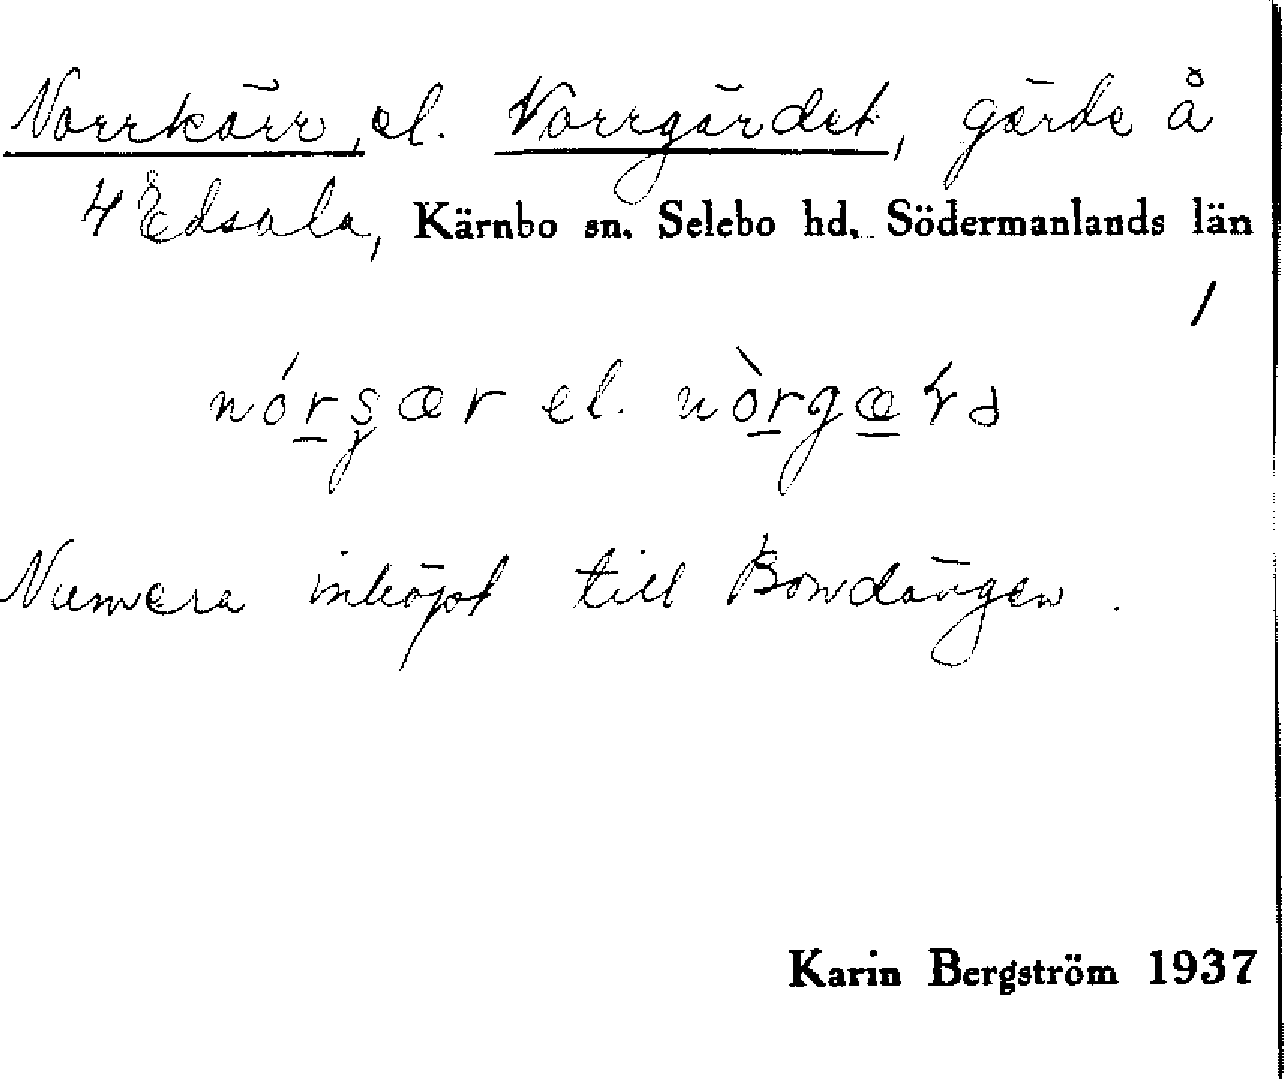 Norrkärr, el. Norrgärdet, gärde å
4 Edsala, Kärnbo sn. Selebo hd. Södermanlands län
/
el.
Numera inköpt till Bondängen.
Karin Bergström 1937